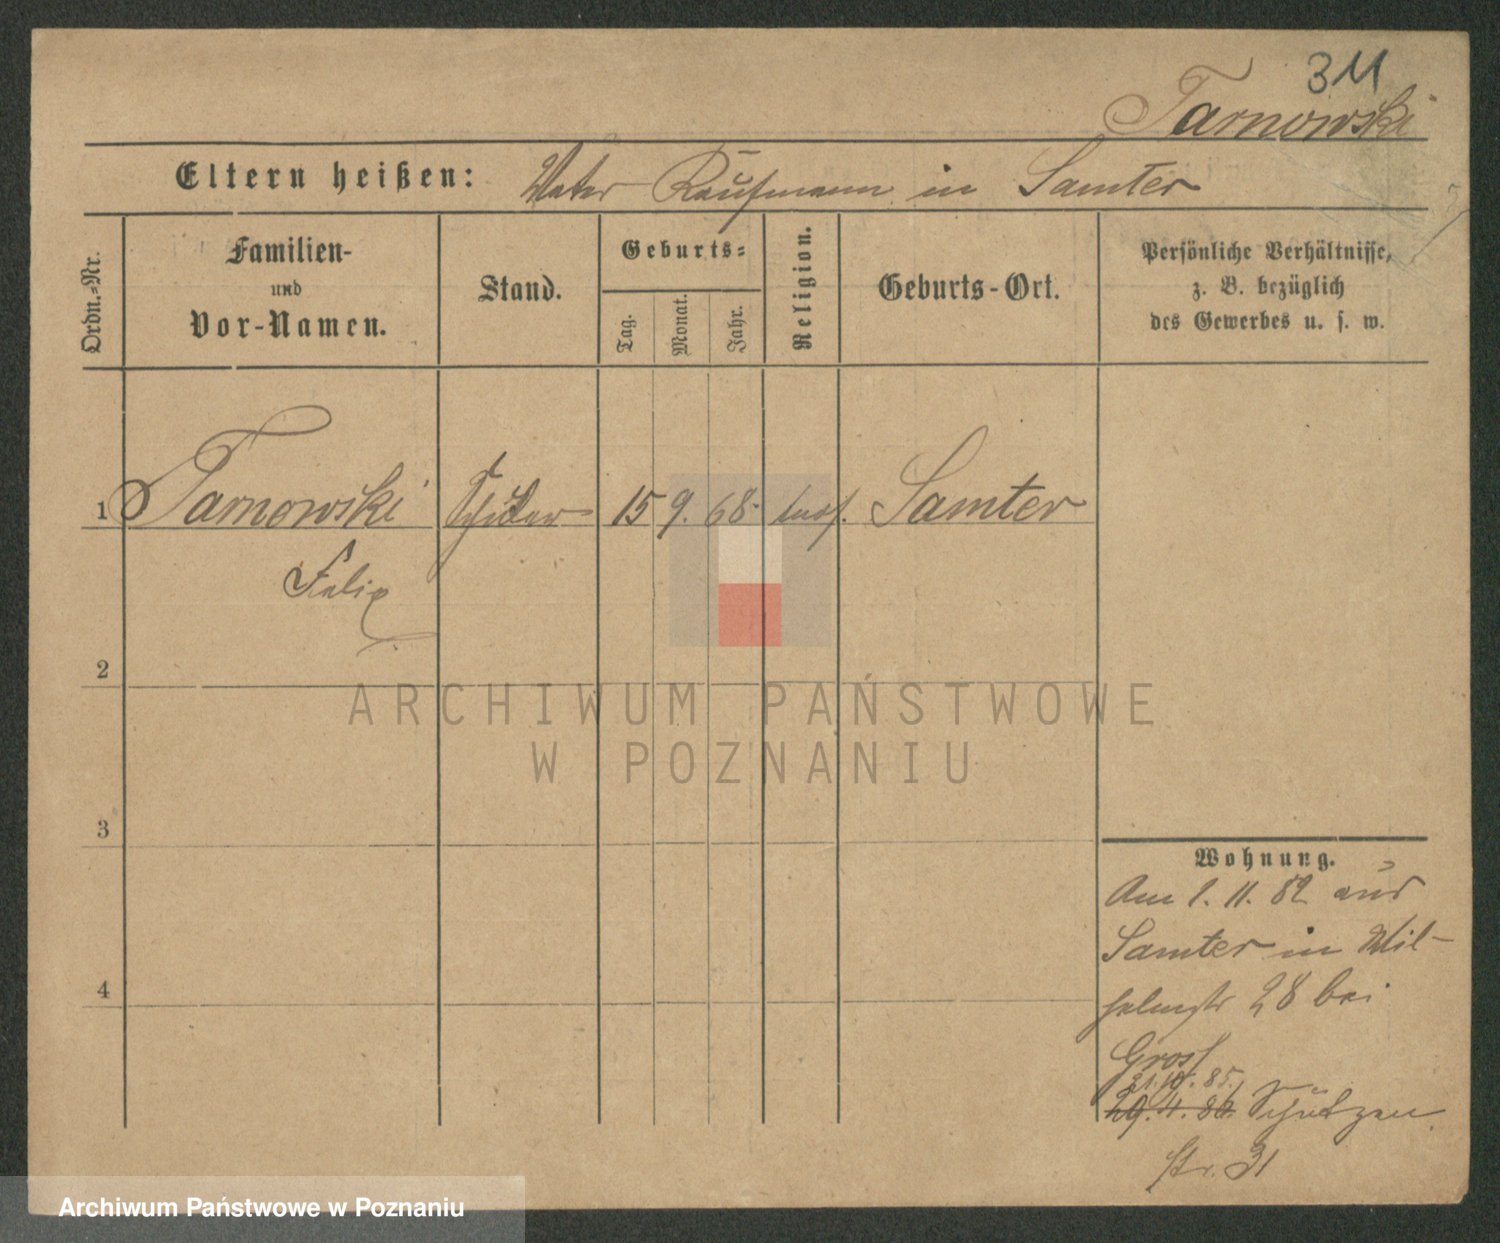 311
Tarnowski
Eltern heißen: Vater Kaufmann in Samter
Ordn.-Nr.
Familien-
und
Vor-Namen.
Stand.
Geburts-
Tag.
Monat.
Jahr.
Religion.
Geburts-Ort.
Persönliche Verhältnisse,
z. B. bezüglich
des Gewerbes u. s. w.
1 Tarnowski Schüler 15 9. 68. mos. Samter
Felix
2
ARCHIWUM PAŃSTWOWE
W POZNANIU
3
4
Wohnung.
Am 1. 11. 82 aus
Samter in Wil-
helmstr 28 bei
Gross
21. 10. 85.
29. 4. 86. Schützen
str. 31
Archiwum Państwowe w Poznaniu